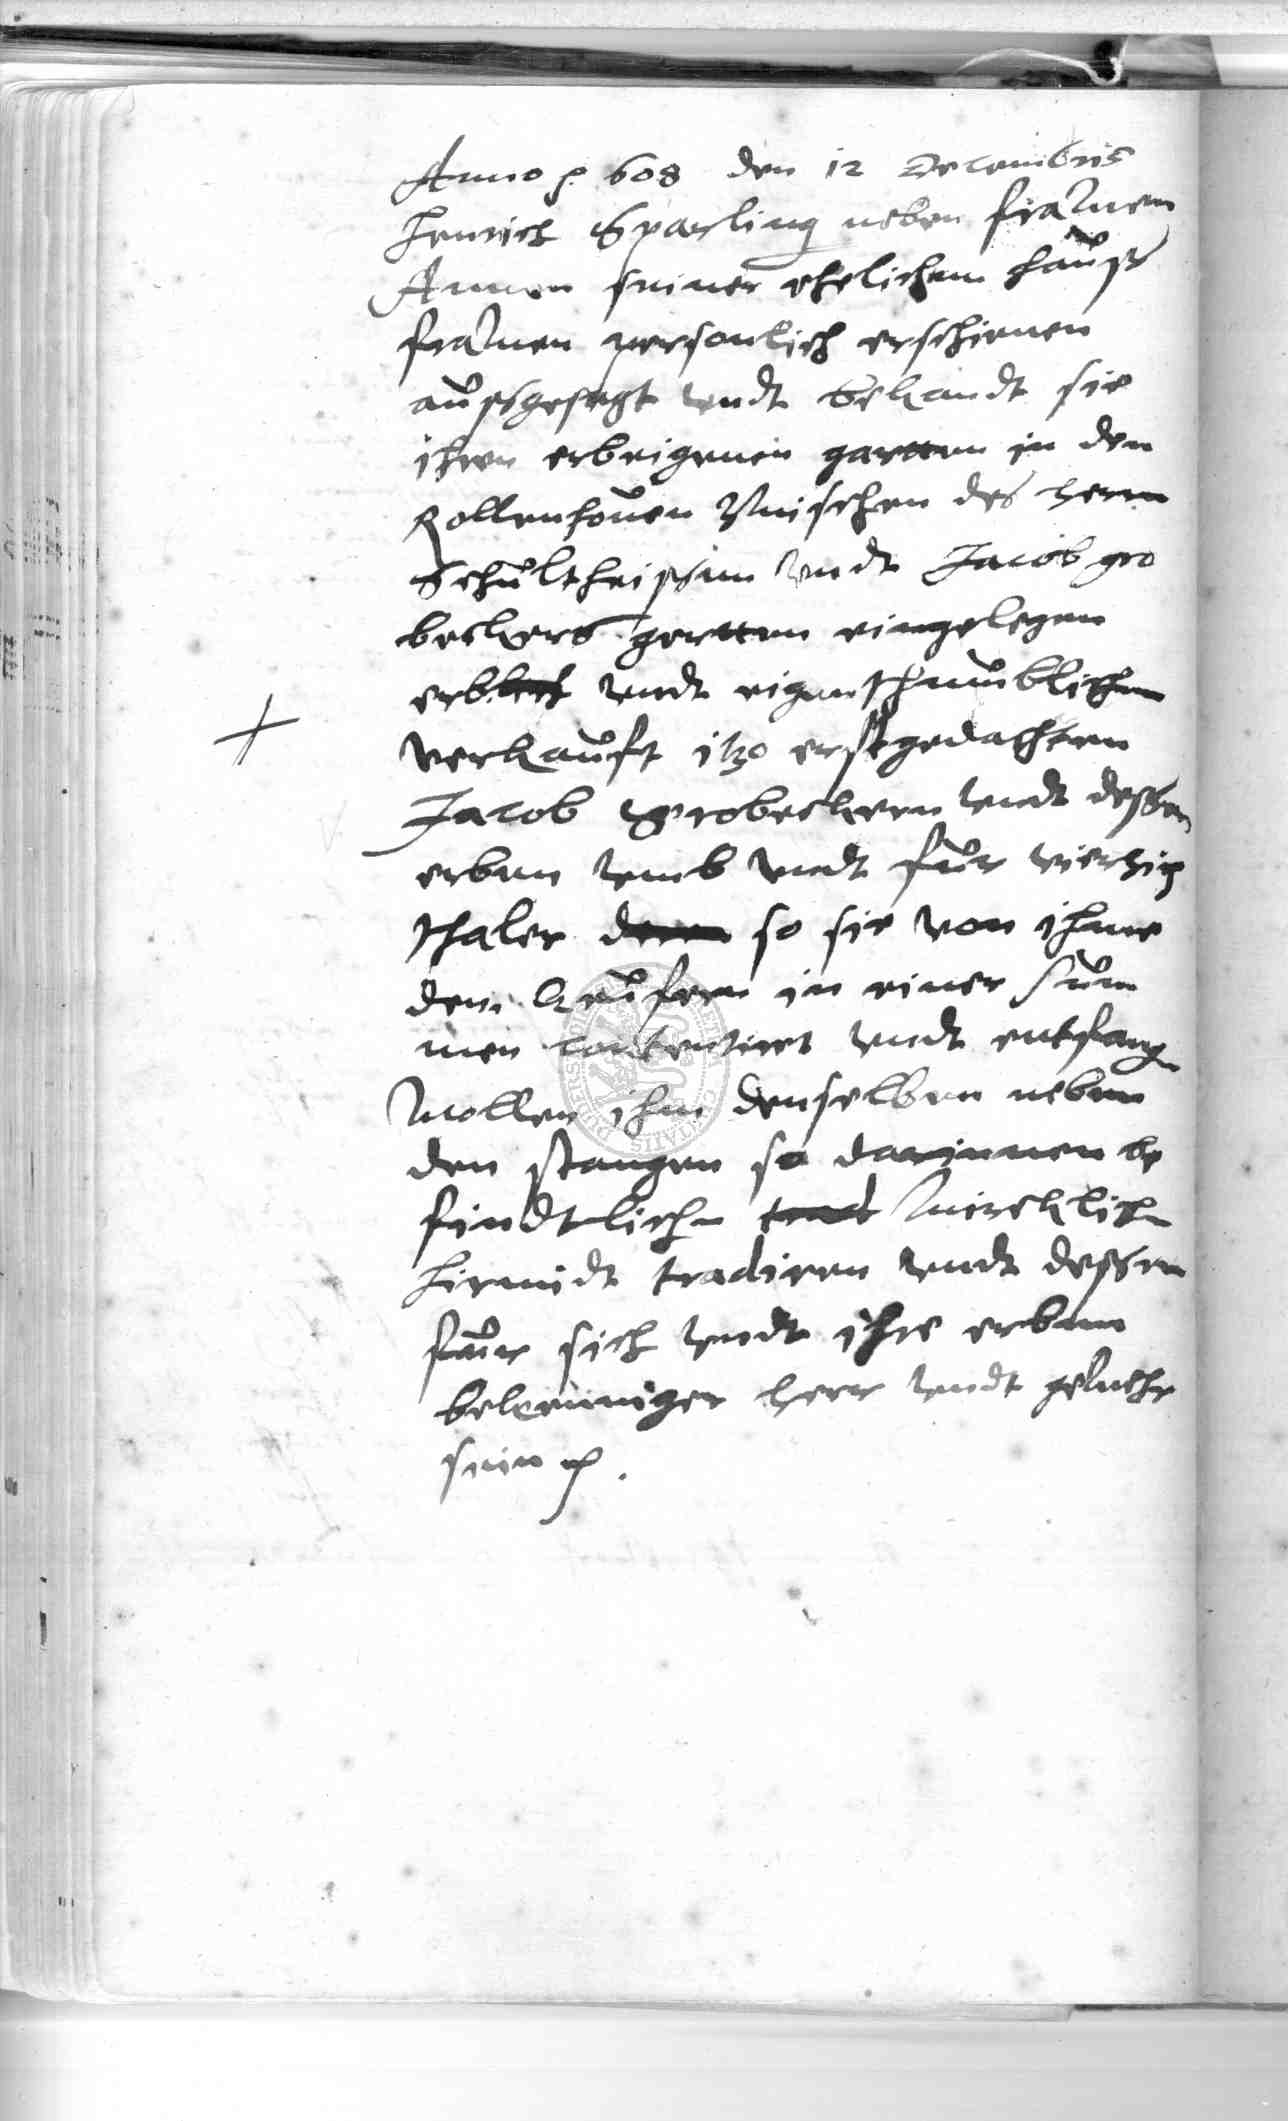 Anno p. 608 den 12 Decembris
Henrich Sparling neben frawen
Annen seiner ehelichen hauß
frawen personlich erschienen
außgesagt vndt bekandt sie
ihren erbeigenen gartten in den
Rollenhouen zwischen des herrn
Schultheissen vndt Jacob gro
beckers gertten eingelegen
erblich vndt eigenthumblichen
verkauft itzo erstgedachten
Jacob Grobeckern vndt dessen
erben vmb vndt fur vierzig
thaler deren so sie von ihme
dem keufern in einer sum
men contentiret vndt entfang
wollen ihm denselben neben
den stangen so darinnen be
findtlichen trad wircklichen
hiermidt tradiren vndt dessen
fuur sich vndt ihre erben
bekenniger herr vndt gewehr
sein p.
DUDERSTADT CIVITATIS